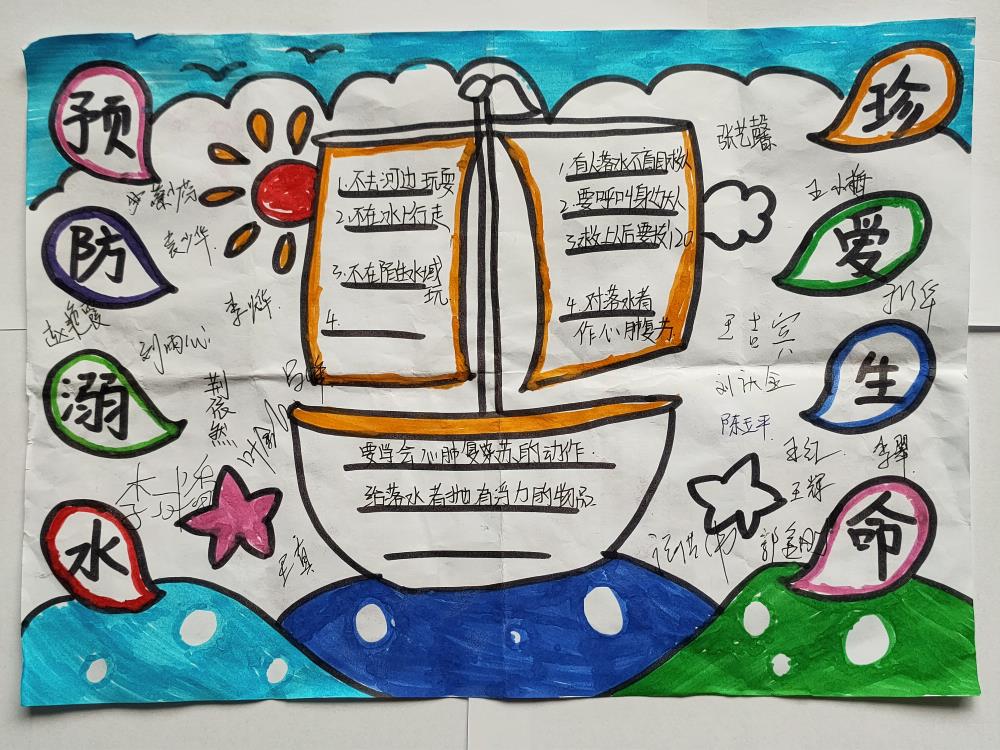 预
防
溺
水
珍
爱
生
命
1.不去河边玩耍
2.不在冰上行走
3.不在陌生水域
玩
4.
1.有人落水不盲目救人
2.要呼叫身边大人
3.救上以后要拨120
4.对落水者
作心肺复苏
要学会心肺复苏的动作
给落水者抛有浮力的物品
张艺馨
袁少华
李烨
赵艳霞
刘雨心
荆依然
王吉宾
陈立平
王红
李翠
王辉
王真